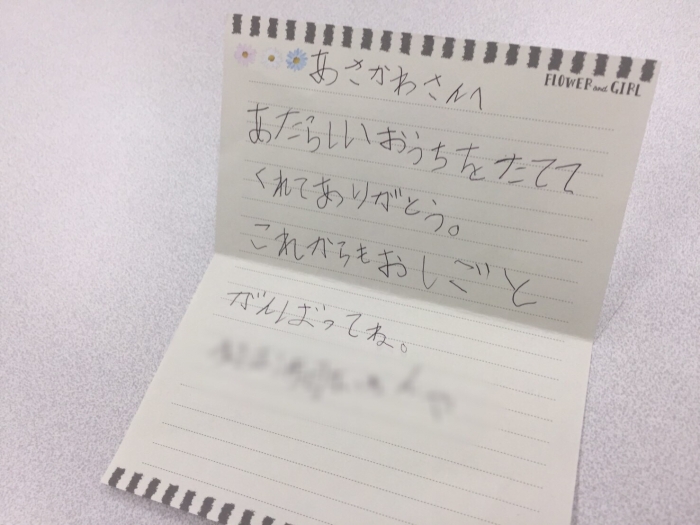 あさかわさんへ
FLOWER and GIRL
あたらしいおうちをたてて
くれてありがとう。
これからもおしごと
がんばってね。